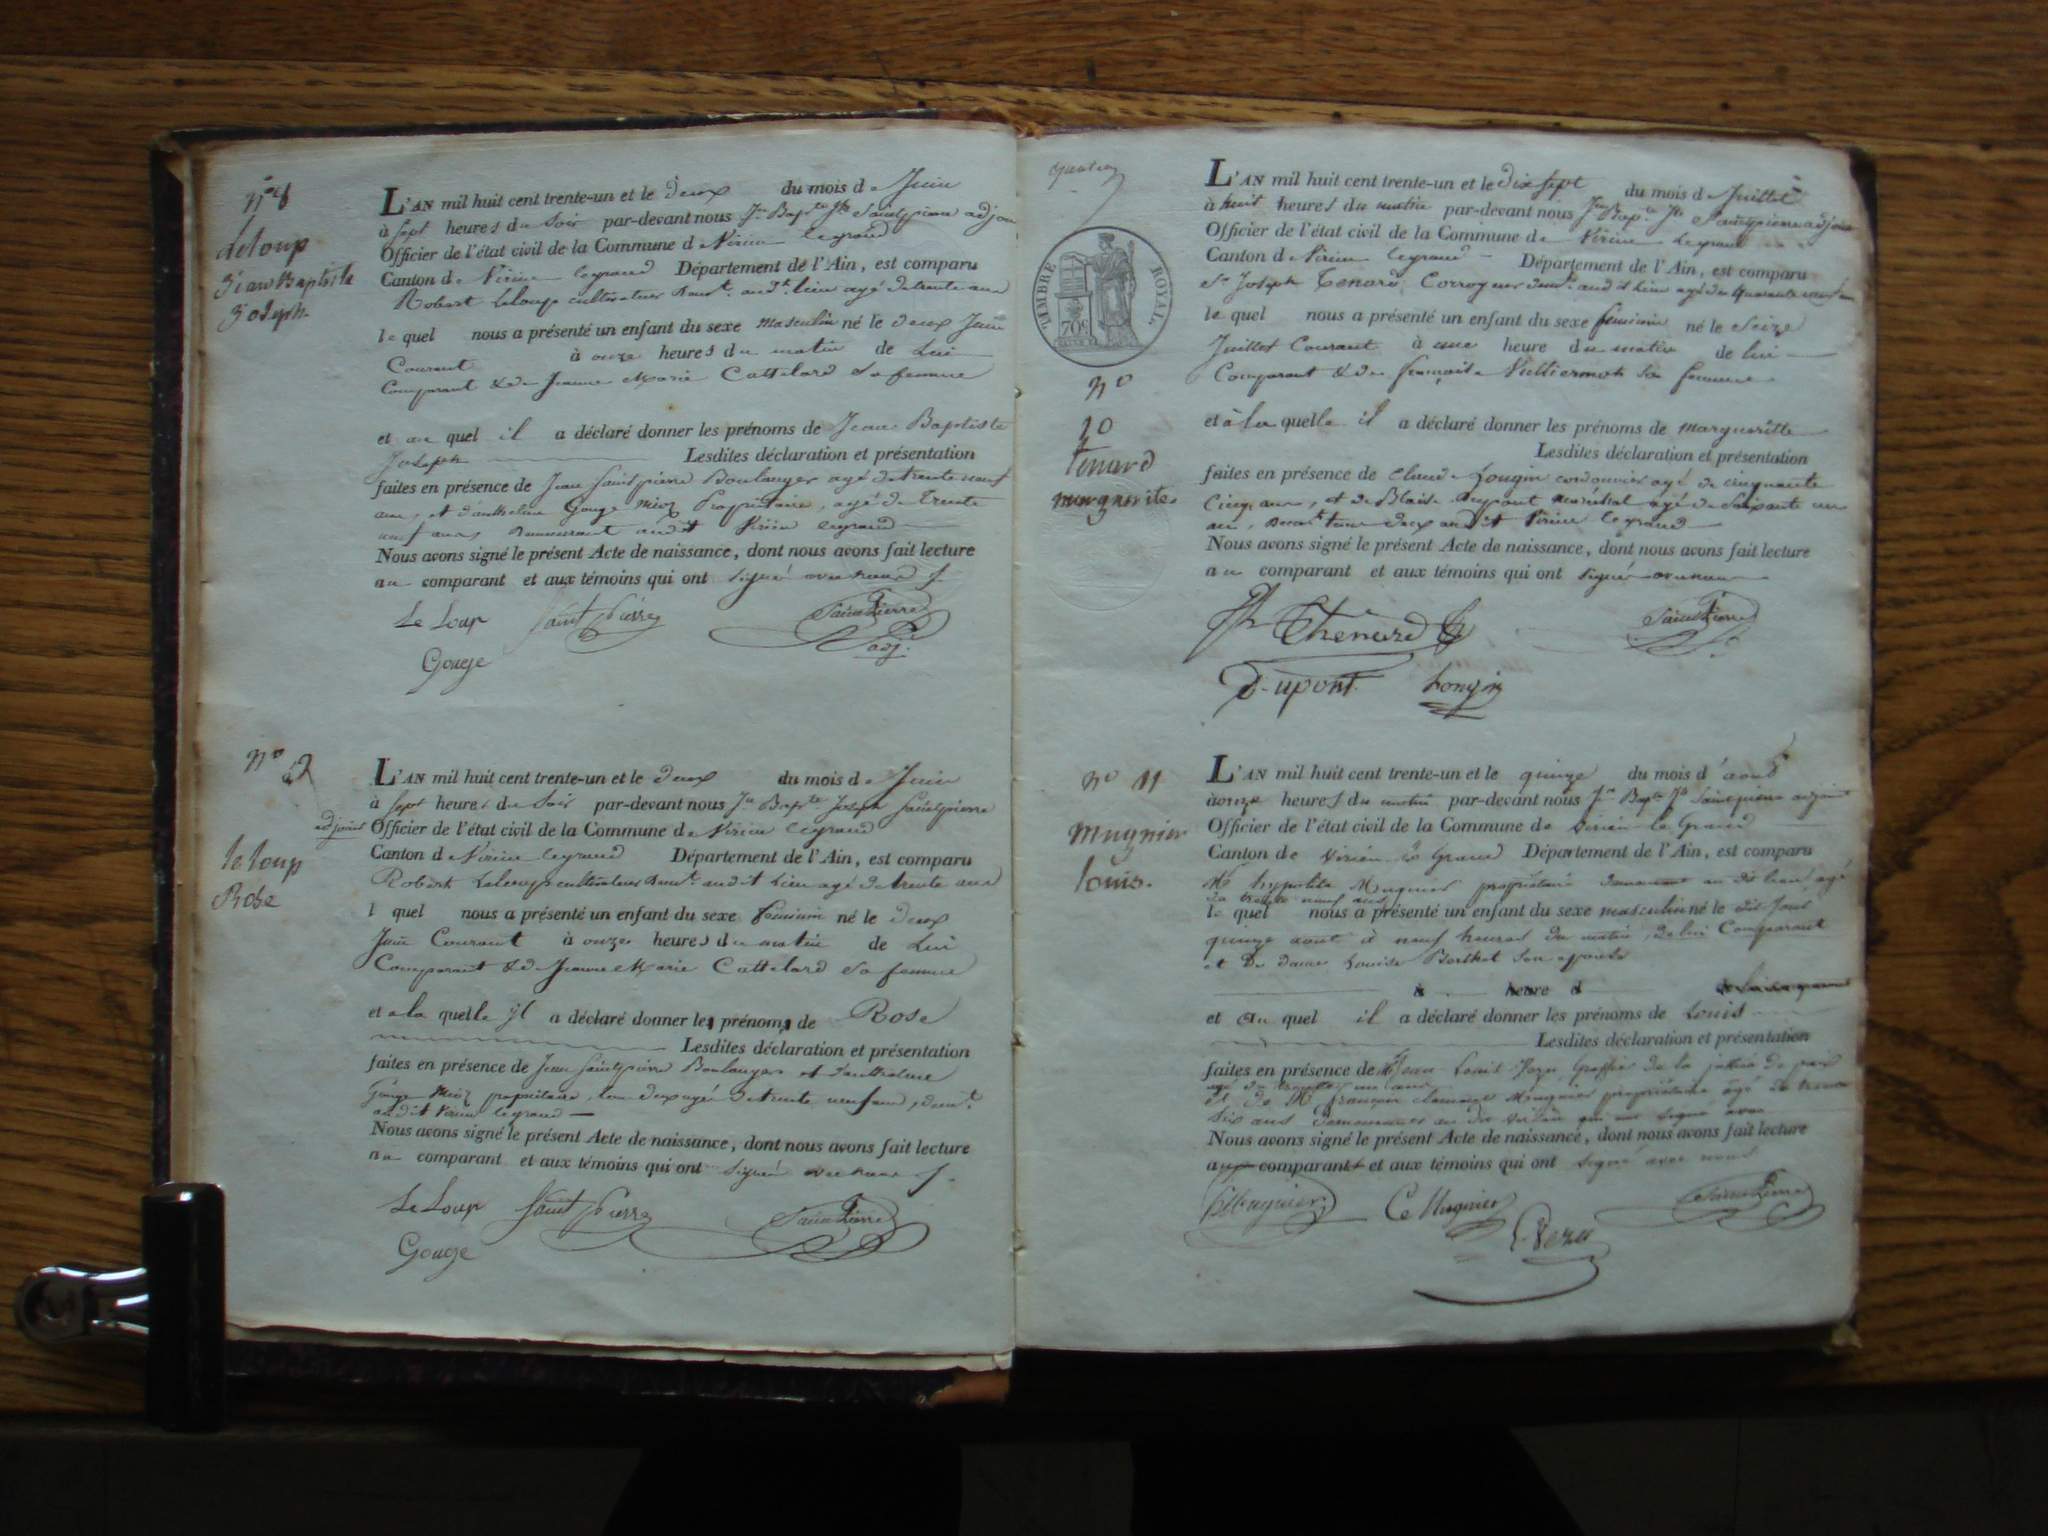 N° 8
Leloup
Jean Baptiste
Joseph
L'AN mil huit cent trente-un et le deux du mois de Juin
à sept heures du soir par-devant nous Jn Bapte Jh Saintpierre adjoint
Officier de l'état civil de la Commune de Virieu legrand
Canton de Virieu legrand Département de l'Ain, est comparu
Robert Leloup cultivateur demt audt lieu agé de trente ans
le quel nous a présenté un enfant du sexe masculin né le deux Juin
Courant à onze heures du matin de Lui
Comparant & de Jeanne Marie Cattelard sa femme
et au quel il a déclaré donner les prénoms de Jean Baptiste
Joseph Lesdites déclaration et présentation
faites en présence de Jean Saintpierre Boulanger agé de trente neuf
ans, et d'anthelme Gouge Propriétaire, agé de Trente
neuf ans Demeurant audit Virieu legrand
Nous avons signé le présent Acte de naissance, dont nous avons fait lecture
au comparant et aux témoins qui ont signé avec nous
Le Loup Saint Pierre Saint Pierre
adj.
Gouge
N° 9
le loup
Rose
L'AN mil huit cent trente-un et le deux du mois de Juin
à sept heures du Soir par-devant nous Jn Bapte Joseph Saintpierre
adjoint Officier de l'état civil de la Commune de Virieu legrand
Canton de Virieu legrand Département de l'Ain, est comparu
Robert Leloup cultivateur demt audit Lieu agé de trente ans
l quel nous a présenté un enfant du sexe féminin né le deux
Juin Courant à onze heures du matin de Lui
Comparant & de Jeanne Marie Cattelard sa femme
et a la quelle il a déclaré donner les prénoms de Rose
Lesdites déclaration et présentation
faites en présence de Jean Saintpierre Boulanger et d'anthelme
Gouge propriétaire, tous deux agés de trente neuf ans, demt
audit Virieu legrand
Nous avons signé le présent Acte de naissance, dont nous avons fait lecture
au comparant et aux témoins qui ont signé avec nous
Le Loup Saint Pierre Saint Pierre
Gouge
TIMBRE ROYAL
70c
N°
10
Tenard
marguerite
L'AN mil huit cent trente-un et le dix sept du mois de Juillet
à huit heures du matin par-devant nous Jn Bapte Jh Saintpierre adjoint
Officier de l'état civil de la Commune de Virieu Legrand
Canton de Virieu legrand Département de l'Ain, est comparu
Sr Joseph Tenard Corroyeur demt audit Lieu agé de Quarante neuf ans
le quel nous a présenté un enfant du sexe féminin né le Seize
Juillet Courant à une heure du matin de lui
Comparant & de françoise Vulliermoz sa femme
et à la quelle il a déclaré donner les prénoms de margueritte
Lesdites déclaration et présentation
faites en présence de Claude Longin cordonnier agé de cinquante
Cinq ans, et de Blaise Dupont maréchal agé de Soixante un
an, demt tous deux audit Virieu legrand
Nous avons signé le présent Acte de naissance, dont nous avons fait lecture
au comparant et aux témoins qui ont signé avec nous
Jh Thenard Saint Pierre
Dupont Longin
N° 11
Mugnier
louis.
L'AN mil huit cent trente-un et le quinze du mois d'aout
à onze heures du matin par-devant nous Jn Bapte Jh Saintpierre adjoint
Officier de l'état civil de la Commune de Virieu le Grand
Canton de Virieu le Grand Département de l'Ain, est comparu
Mr hypolite Mugnier propriétaire demeurant au dit lieu, agé
de trente neuf ans
le quel nous a présenté un enfant du sexe masculin né le dit jour
quinze aout à neuf heures du matin, de lui Comparant
et De dame Louise Berthet son épouse
à heure d
et au quel il a déclaré donner les prénoms de Louis
Lesdites déclaration et présentation
faites en présence de Mr Jean Louis Greffier de la justice de paix
et de Mr françois Mugnier propriétaire agé de trente
six ans demeurant au dit Virieu qui ont signé avec
Nous avons signé le présent Acte de naissance, dont nous avons fait lecture
aux comparants et aux témoins qui ont signé avec nous
Mugnier Ce Mugnier Saint Pierre